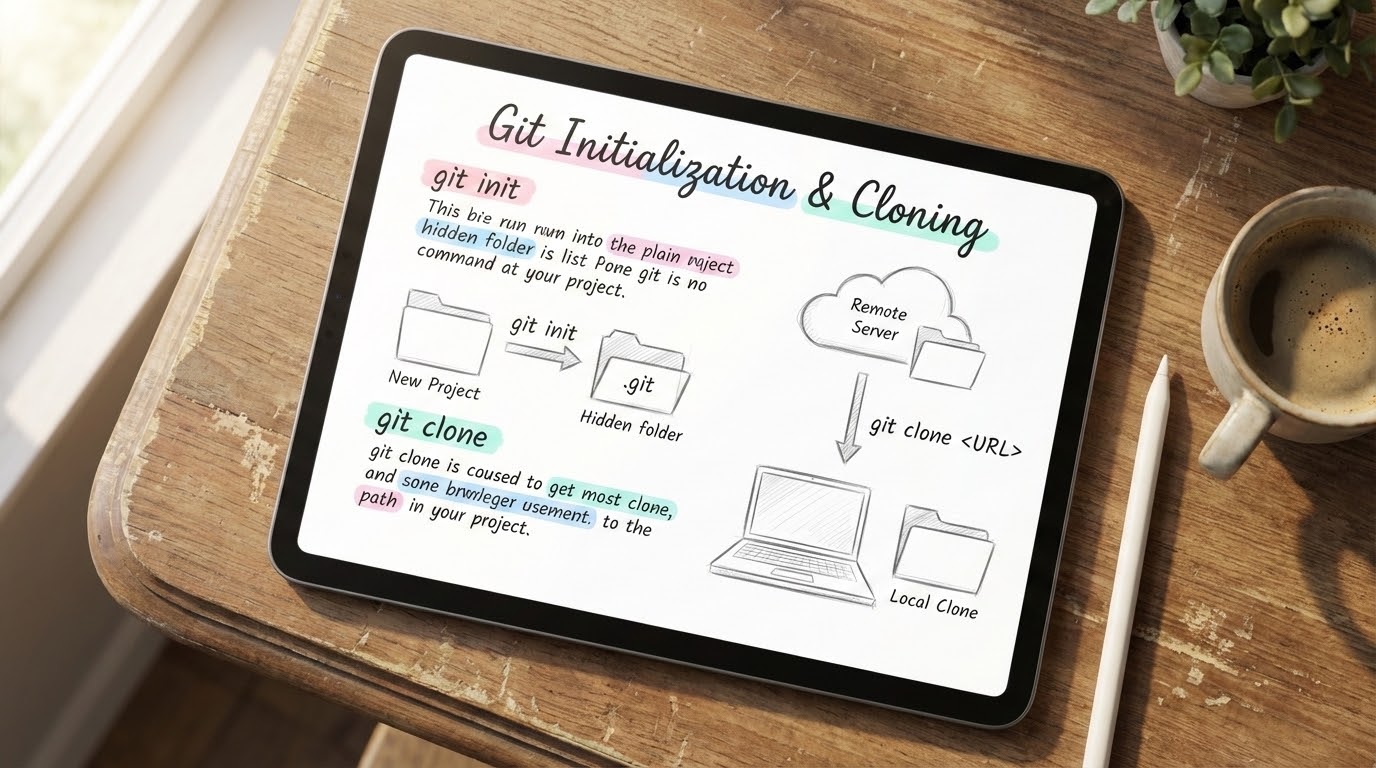 Git Initialization & Cloning
git init
This run into the plain
hidden folder is list Pone git is no
command at your project.
git init
New Project
.git
Hidden folder
git clone
git clone is coused to get most clone,
and sone usement. to the
path in your project.
Remote
Server
git clone <URL>
Local Clone